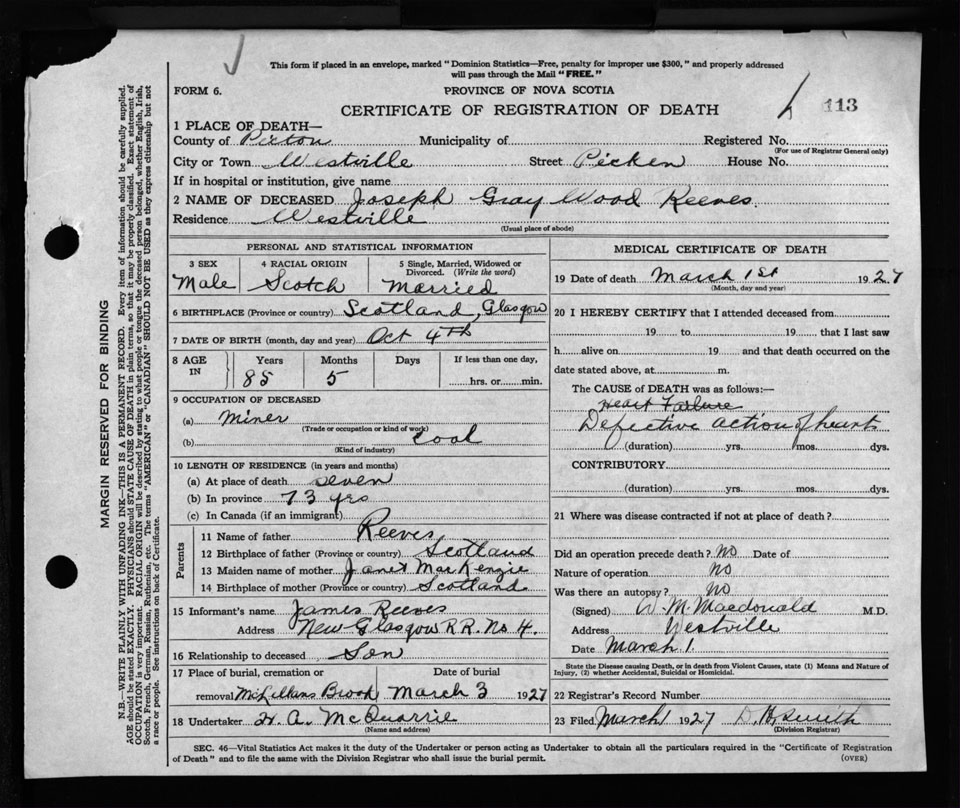 This form if placed in an envelope, marked "Dominion Statistics—Free, penalty for improper use $300," and properly addressed
will pass through the Mail "FREE."
FORM 6.
PROVINCE OF NOVA SCOTIA
CERTIFICATE OF REGISTRATION OF DEATH
113
1 PLACE OF DEATH—
County of Pictou Municipality of Registered No.
(For use of Registrar General only)
City or Town Westville Street Picken House No.
If in hospital or institution, give name
2 NAME OF DECEASED Joseph Gray Wood Reeves.
Residence Westville
(Usual place of abode)
PERSONAL AND STATISTICAL INFORMATION
3 SEX 4 RACIAL ORIGIN 5 Single, Married, Widowed or
Divorced. (Write the word)
Male Scotch Married
6 BIRTHPLACE (Province or country) Scotland, Glasgow
7 DATE OF BIRTH (month, day and year) Oct 4th
8 AGE IN Years Months Days If less than one day,
85 5 hrs. or min.
9 OCCUPATION OF DECEASED
(a) Miner
(Trade or occupation or kind of work)
(b) Coal
(Kind of industry)
10 LENGTH OF RESIDENCE (in years and months)
(a) At place of death seven
(b) In province 73 yrs
(c) In Canada (if an immigrant)
Parents
11 Name of father Reeves
12 Birthplace of father (Province or country) Scotland
13 Maiden name of mother Janet MacKenzie
14 Birthplace of mother (Province or country) Scotland
15 Informant's name James Reeves
Address New Glasgow R R. No 4.
16 Relationship to deceased Son
17 Place of burial, cremation or Date of burial
removal Brook March 3 1927
18 Undertaker H. A. McQuarrie
(Name and address)
MEDICAL CERTIFICATE OF DEATH
19 Date of death March 1st 1927
(Month, day and year)
20 I HEREBY CERTIFY that I attended deceased from
19 to 19 that I last saw
h alive on 19 and that death occurred on the
date stated above, at m.
The CAUSE of DEATH was as follows:—
Heart Failure
Defective action of heart
(duration) yrs. mos. dys.
CONTRIBUTORY
(duration) yrs. mos. dys.
21 Where was disease contracted if not at place of death?
Did an operation precede death? No Date of
Nature of operation No
Was there an autopsy? No
(Signed) W. M. Macdonald M.D.
Address Westville
Date March 1
State the Disease causing Death, or in death from Violent Causes, state (1) Means and Nature of
Injury, (2) whether Accidental, Suicidal or Homicidal.
22 Registrar's Record Number
23 Filed March 1 1927 D. H. Smith
(Division Registrar)
SEC. 46—Vital Statistics Act makes it the duty of the Undertaker or person acting as Undertaker to obtain all the particulars required in the "Certificate of Registration
of Death" and to file the same with the Division Registrar who shall issue the burial permit.
(OVER)
MARGIN RESERVED FOR BINDING
N.B.—WRITE PLAINLY WITH UNFADING INK—THIS IS A PERMANENT RECORD. Every item of information should be carefully supplied.
AGE should be stated EXACTLY. PHYSICIANS should STATE CAUSE OF DEATH in plain terms, so that it may be properly classified. Exact statement of
OCCUPATION is very important. RACIAL ORIGIN will be described by stating to what people or tongue the deceased person belonged, whether English, Irish,
Scotch, French, German, Russian, Ruthenian, etc. The terms "AMERICAN" or "CANADIAN" SHOULD NOT BE USED as they express citizenship but not
a race or people. See instructions on back of Certificate.